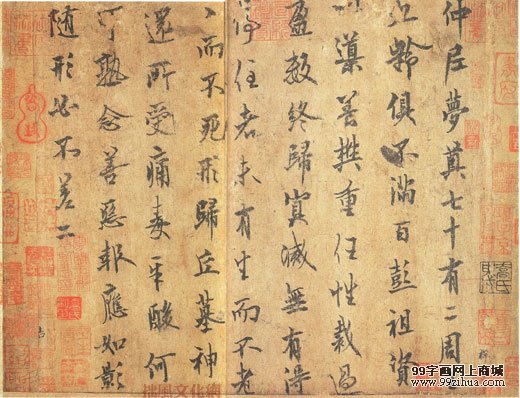 仲尼夢奠七十有二周
王九齡俱不滿百彭祖資
以導養樊重任性裁過
盈數終歸冥滅無有得
停住者未有生而不老
々而不死形歸丘墓神
還所受痛毒辛酸何
可熟念善惡報應如影
隨形必不差二
拙風文化網
99字画网上商城
www.99zihua.com